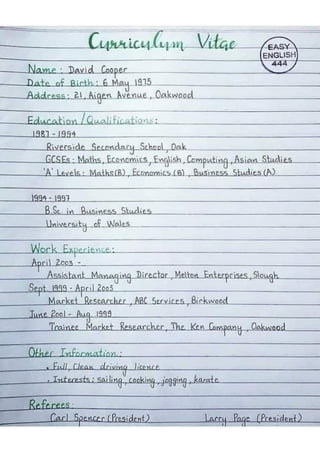 Curriculum Vitae
EASY
ENGLISH
444
Name : David Cooper
Date of Birth : 6 May 1975
Address : 21, Aigen Avenue, Oakwood
Education / Qualifications :
1987 - 1994
Riverside Secondary School, Oak
GCSEs : Maths, Economics, English, Computing, Asian Studies
'A' Levels : Maths (B), Economics (B), Business Studies (A)
1994 - 1997
B.Sc. in Business Studies
University of Wales
Work Experience :
April 2003 -
Assistant Managing Director, Melton Enterprises, Slough
Sept. 1999 - April 2003
Market Researcher, ABC Services, Birkwood
June 2001 - Aug. 1999
Trainee Market Researcher, The Ken Company, Oakwood
Other Information :
• Full, Clean driving licence
• Interests : sailing, cooking, jogging, karate
Referees :
Carl Spencer (President) Larry Page (President)